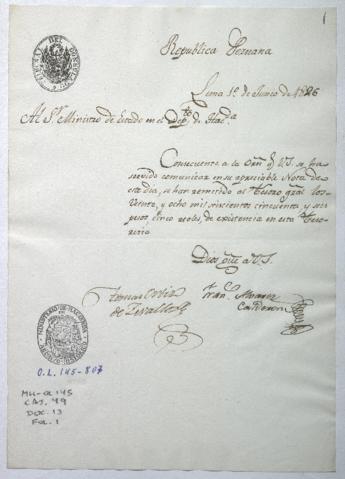 1
Republica Peruana
Lima 1º. de Junio de 1826
Al Sr. Ministro de Estado en el Depto. de Hacda.
Consecuente a la orn q. V.S. se ha
servido comunicar en su apreciable Nota de
este dia, se han remitido al Tesoro gral los
veinte, y ocho mil cincuenta y seis
pesos, cinco reales, de existencia en esta Teso-
reria
Dios gue. a V.S.
Tomas Ortiz
de Zevallos
Fran. Alvarez
Calderon
MINISTERIO DE HACIENDA
O.L. 145-807
MH-OL 145
CAJ. 49
DOC. 13
FOL. 1